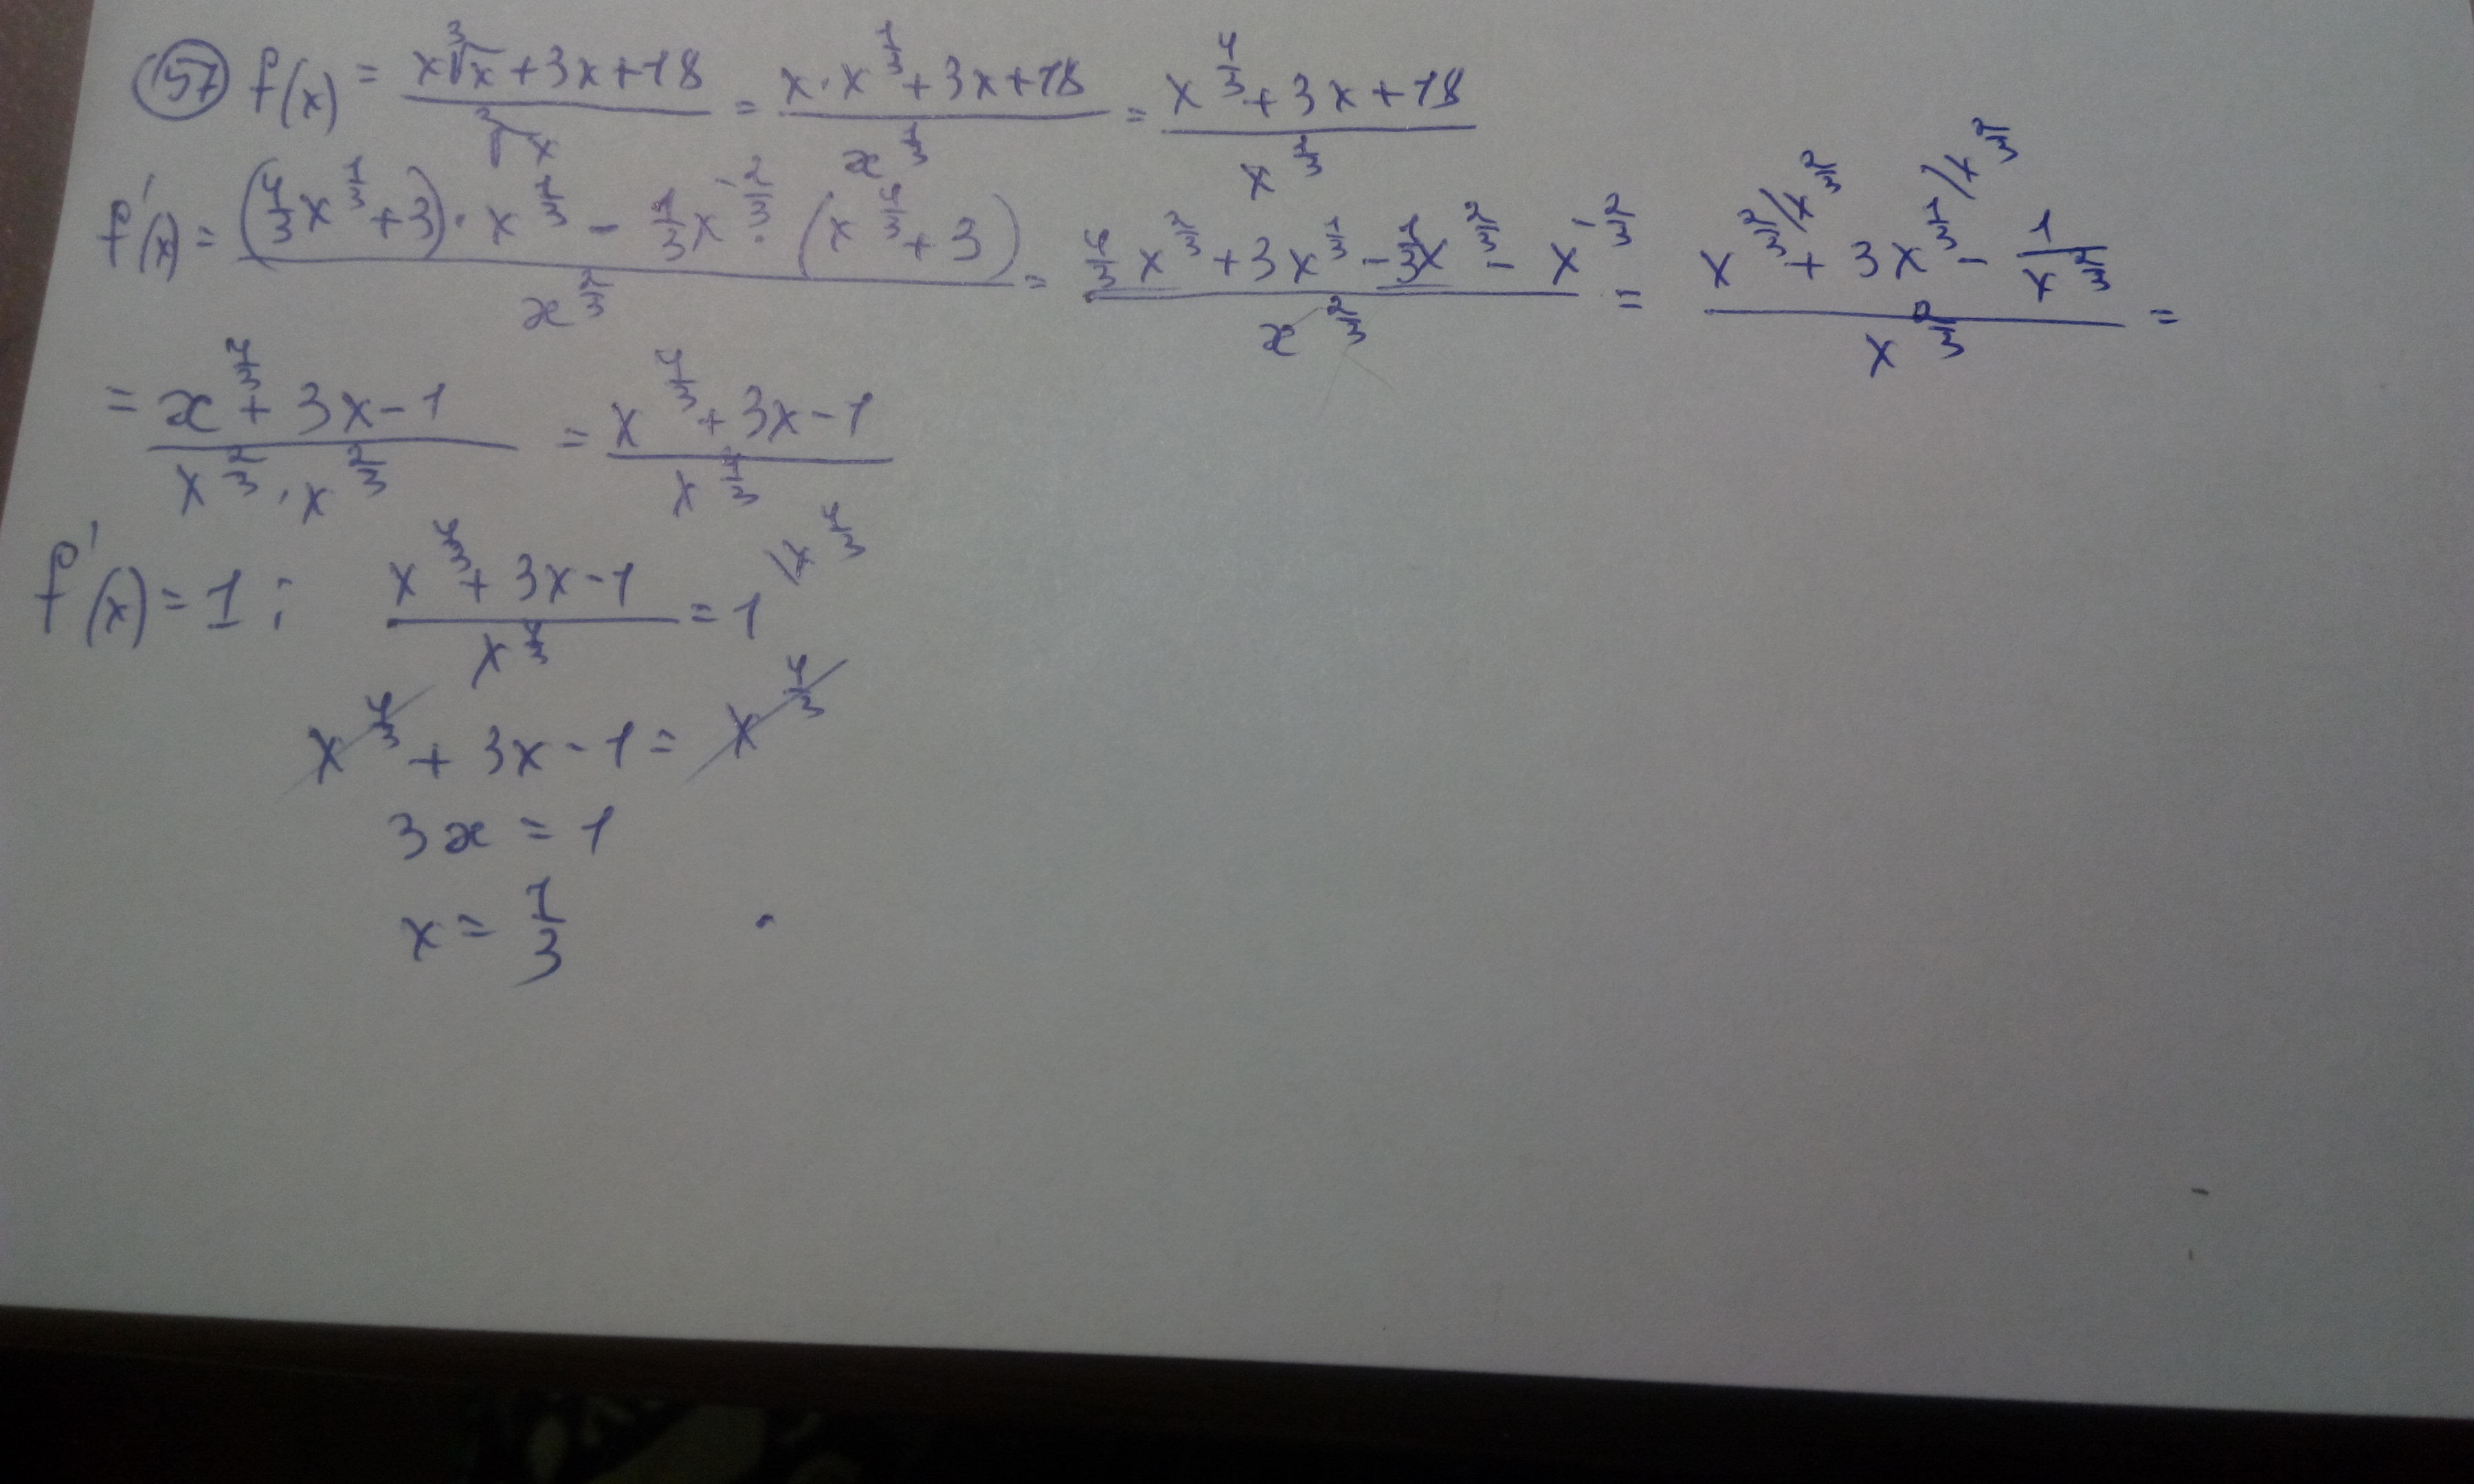 157 f(x) = (x∛x + 3x + 18)/∛x = (x·x^(1/3) + 3x + 18)/x^(1/3) = (x^(4/3) + 3x + 18)/x^(1/3)
f'(x) = ((4/3 x^(1/3) + 3)·x^(1/3) − 1/3 x^(−2/3)·(x^(4/3) + 3))/x^(2/3) = (4/3 x^(2/3) + 3x^(1/3) − 1/3 x^(2/3) − x^(−2/3))/x^(2/3) = (x^(2/3) /x^(2/3) + 3x^(1/3) /x^(2/3) − 1/x^(2/3))/x^(2/3) =
= (x^(4/3) + 3x − 1)/(x^(2/3)·x^(2/3)) = (x^(4/3) + 3x − 1)/x^(4/3)
f'(x) = 1; (x^(4/3) + 3x − 1)/x^(4/3) = 1 \x^(4/3)
x^(4/3) + 3x − 1 = x^(4/3)
3x = 1
x = 1/3